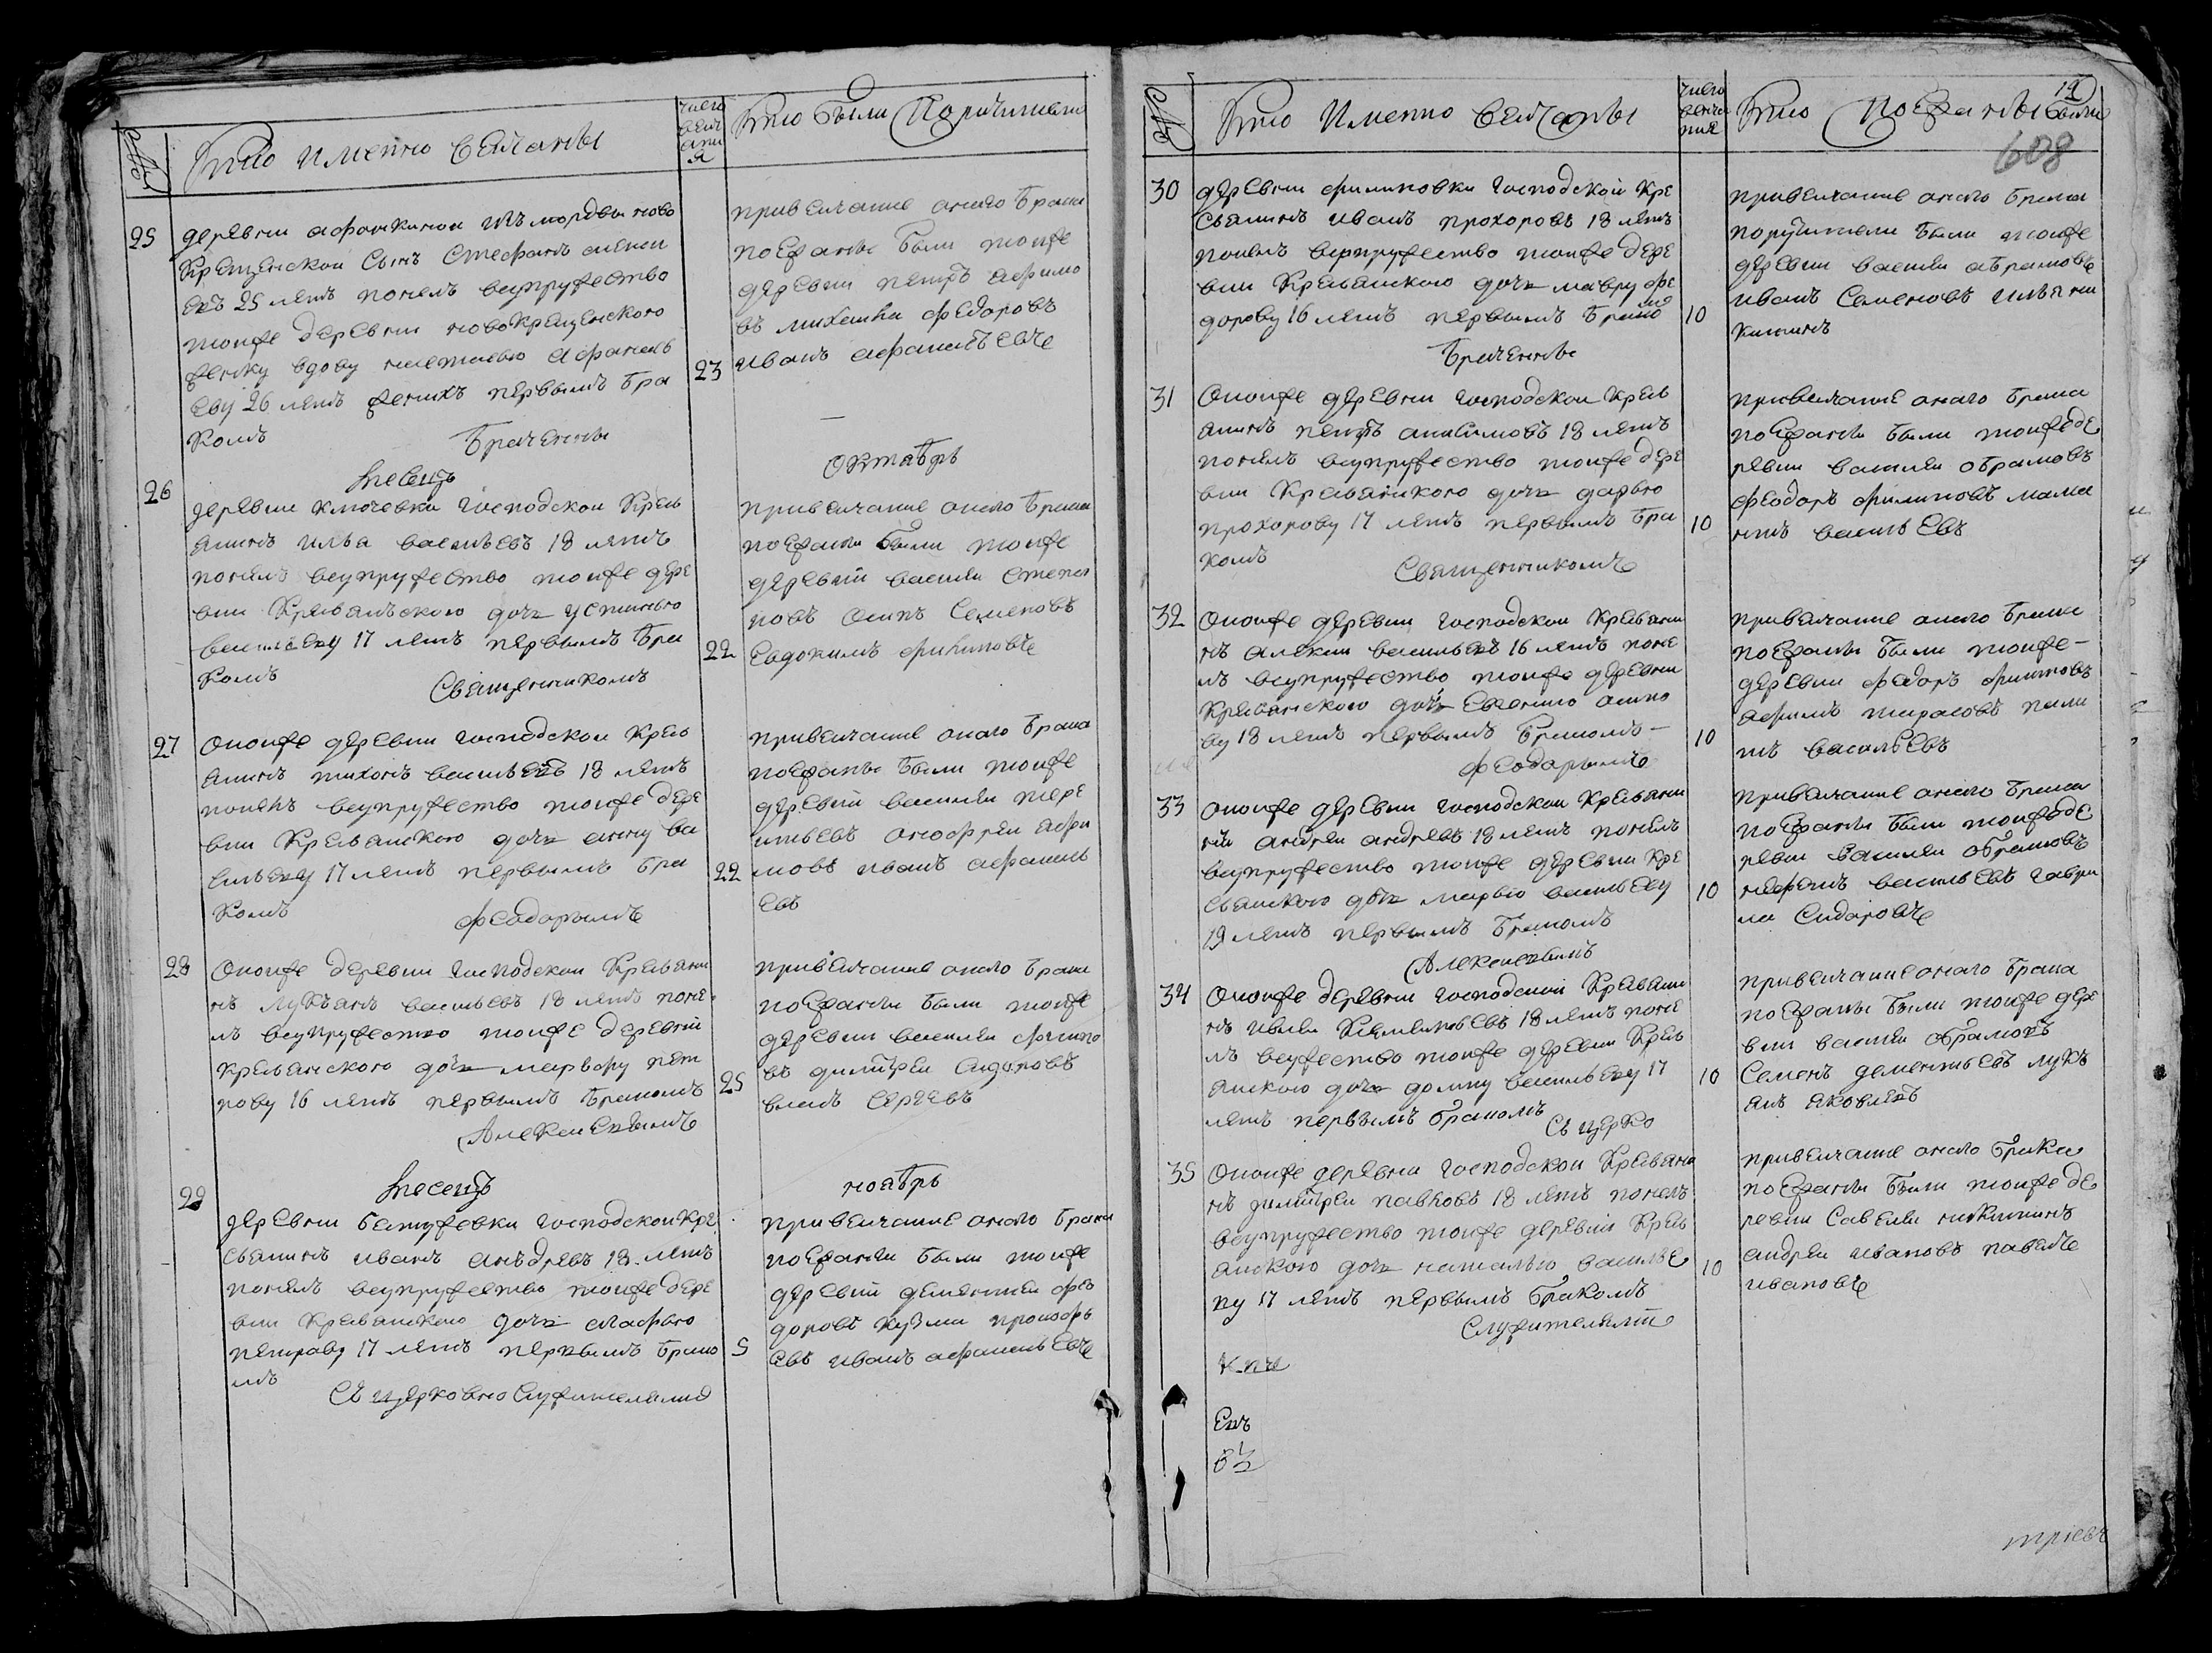 Кто имянно венчаны
число венчания
Кто были поручители
25
деревни афонкиной изъ мордвы ново
крещенской сынъ Стефанъ алекси
евъ 25 летъ понелъ всупружество
тоиже деревни новокрещенского
женку вдову настасью афанась
еву 26 летъ женихъ первымъ бра
комъ
Браченны
23
привенчание оного брака
поезжаны были тоиже
деревни петръ афимо
въ михаила федоровъ
иванъ афанасьевъ
месецъ
октябрь
26
деревни ключевки господской кресь
янинъ илья васильевъ 18 летъ
понелъ всупружество тоиже дере
вни кресьянского дочь устинью
васильеву 17 летъ первымъ бра
комъ
Священникомъ
22
привенчание оного брака
поезжаны были тоиже
деревни василеи степа
новъ осипъ семеновъ
евдокимъ филиповъ
27
Оноиже деревни господской кресь
янинъ тихонъ васильевъ 18 летъ
понелъ всупружество тоиже дере
вни кресьянского дочь анну ва
сильеву 17 летъ первымъ бра
комъ
феодоромъ
22
привенчание оного брака
поезжаны были тоиже
деревни василеи тере
нтьевъ анофреи афи
мовъ иванъ афанась
евъ
28
Оноиже деревни господской кресьяни
нъ лукьянъ васильевъ 18 летъ поне
лъ всупружество тоиже деревни
кресьянского дочь марвору пет
рову 16 летъ первымъ бракомъ
Алексеевымъ
25
привенчание оного брака
поезжаны были тоиже
деревни василеи филипо
въ димитреи сидоровъ
власъ сергеевъ
месецъ
ноябрь
29
деревни батужевки господской кре
сьянинъ иванъ анъдревъ 18 летъ
понелъ всупружество тоиже дере
вни кресьянского дочь агафью
петрову 17 летъ первымъ брако
мъ
Съ церковно служителями
5
привенчание оного брака
поезжаны были тоиже
деревни дементеи фео
доровъ кузма прокофь
евъ иванъ афанасьевъ
Кто имянно венчаны
число венчание
Кто поезжаны были
608
30
деревни филиповки господской кре
сьянинъ иванъ прохоровъ 18 летъ
понелъ всупружество тоиже дере
вни кресьянского дочь мавру фе
дорову 16 летъ первымъ бракомъ
Браченны
10
привенчание оного брака
поручители были тоиже
деревни василеи абрамовъ
иванъ семеновъ илья ни
китинъ
31
Оноиже деревни господской кресь
янинъ петръ анисимовъ 18 летъ
понелъ всупружество тоиже дере
вни кресьянского дочь дарью
прохорову 17 летъ первымъ бра
комъ
Священникомъ
10
привенчание оного брака
поезжаны были тоиже де
ревни василеи обрамовъ
феодоръ филиповъ мама
нтъ васильевъ
32
Оноиже деревни господской кресьяни
нъ алексеи васильевъ 16 летъ поне
лъ всупружество тоиже деревни
кресьянского дочь евгению осипо
ву 18 летъ первымъ бракомъ
феодоромъ
10
привенчание оного брака
поезжаны были тоиже
деревни федоръ филиповъ
афимъ тарасовъ
васильевъ
33
Оноиже деревни господской кресьяни
нъ андреи андревъ 18 летъ понелъ
всупружество тоиже деревни кре
сьянского дочь марью васильеву
19 летъ первымъ бракомъ
Алексеевымъ
10
привенчание оного брака
поезжаны были тоиже де
ревни василеи обрамовъ
нефедъ васильевъ гаври
ла сидоровъ
34
Оноиже деревни господской кресьяни
нъ иваеи клементьевъ 18 летъ поне
лъ всужество тоиже деревни кресь
янского дочь домну васильеву 17
летъ первымъ бракомъ
Съ церко
10
привенчание оного брака
поезжаны были тоиже дере
вни василеи обрамовъ
семенъ дементьевъ лукь
янъ яковлевъ
35
Оноиже деревни господской кресьяни
нъ димитреи павловъ 18 летъ понелъ
всупружество тоиже деревни кресь
янского дочь наталью василье
ву 17 летъ первымъ бракомъ
Служительми
10
привенчание оного брака
поезжаны были тоиже де
ревни савелеи никитинъ
андреи ивановъ павелъ
ивановъ